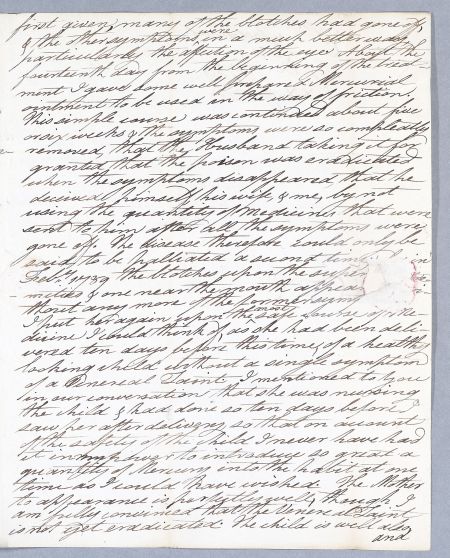 first given, many of the blotches had gone off,
& the other symptoms were in a much better way,
particularly the affection of the eyes. About the
fourteenth day from the beginning of the treat-
ment I gave some well prepared Mercurial
ointment to be used in the way of friction.
This simple course was continued about five
or six weeks & the symptoms were so compleatly
removed, that the Husband taking it for
granted that the poison was eradicated
when the symptoms disappeared, that he
deceived himself, his wife, & me, by not
using the quantity of Medicines that were
sent to him after all the symptoms were
gone off. The disease therefore could only be
said to be palliated a second time, in
Feby. 1789 the blotches upon the
& one near the mouth
thout any more of the former
I put her again upon the most safe course of Me-
dicine I could think of, as she had been deli-
vered ten days before this time, of a healthy
looking child without a single symptom
of a Venereal Taint. I mentioned to you
in our conversation that she was nursing
the child & had done so ten days before I
saw her after delivery, so that on account
of the safety of the child I never have had
it in my power to introduce so great a
quantity of Mercury into the habit at one
time as I could have wished. The Mother
to appearance is perfectly well, though I
am fully convinced that the Venereal Taint
is not yet eradicated. The child is well also
and